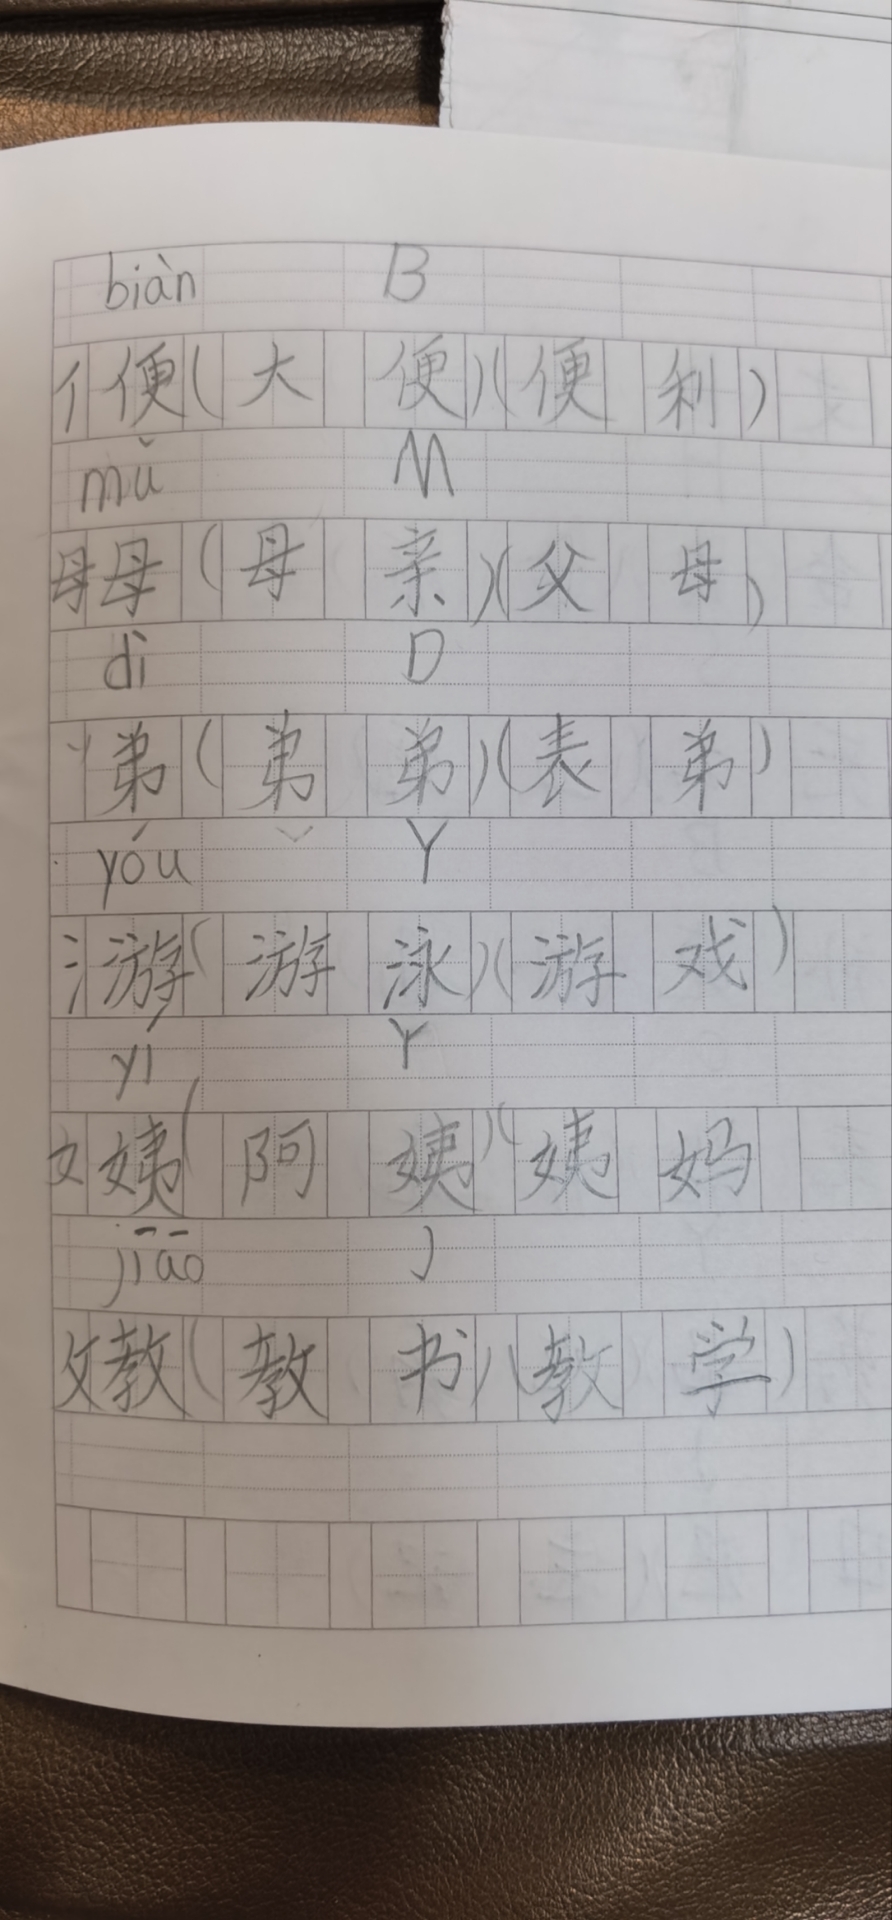 biàn B
亻便(大便)(便利)
mǔ M
母母(母亲)(父母)
dì D
丷弟(弟弟)(表弟)
yóu Y
氵游(游泳)(游戏)
yí Y
女姨(阿姨)(姨妈
jiāo J
攵教(教书)(教学)